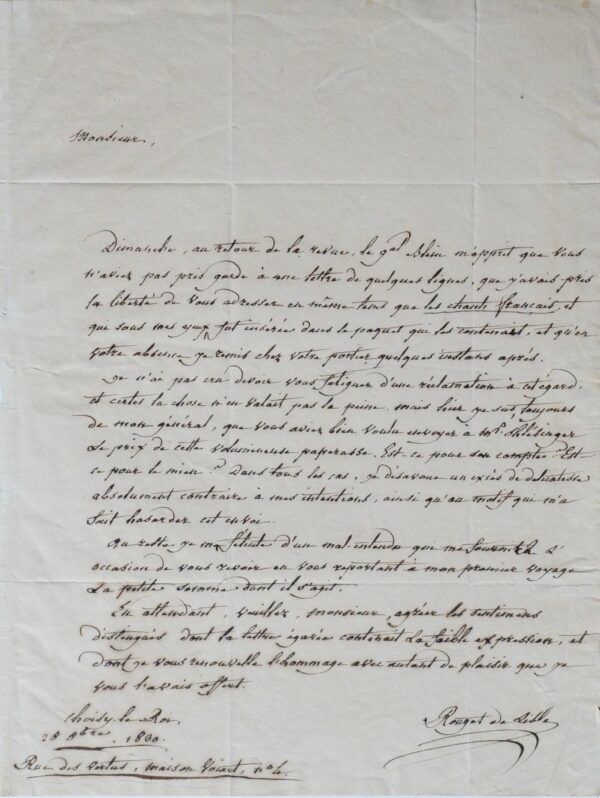 Monsieur,
Dimanche, au retour de la revue, le gal Blein m'apprit que vous
n'aviez pas pris garde à une lettre de quelques lignes, que j'avais pris
la liberté de vous adresser en même tems que les chants français, et
qui sous mes yeux fut insérée dans le paquet qui les contenait, et qu'en
votre absence je remis chez votre portier quelques instans après.
Je n'ai pas cru devoir vous fatiguer d'une réclamation à cet égard;
et certes la chose n'en valait pas la peine. mais hier je sus, toujours
de mon général, que vous aviez bien voulu envoyer à Mr. Shlésinger
le prix de cette volumineuse paperasse. Est ce pour son compte? Est
ce pour le mien? Dans tous les cas, je désavoue un excès de délicatesse
absolument contraire à mes intentions, ainsi qu'au motif qui m'a
fait hasarder cet envoi.
Au reste je me félicite d'un mal entendu qui me fournit l'
occasion de vous revoir en vous reportant à mon premier voyage
la petite somme dont il s'agit.
En attendant, veuillez, monsieur, agréer les sentimens
distingués dont la lettre égarée contenait la faible expression, et
dont je vous renouvelle l'hommage avec autant de plaisir que je
vous l'avais offert.
Choisy le Roi,
Rouget de Lisle
8bre. 1830.
Rue des Vertus, maison Voïart, no 4.